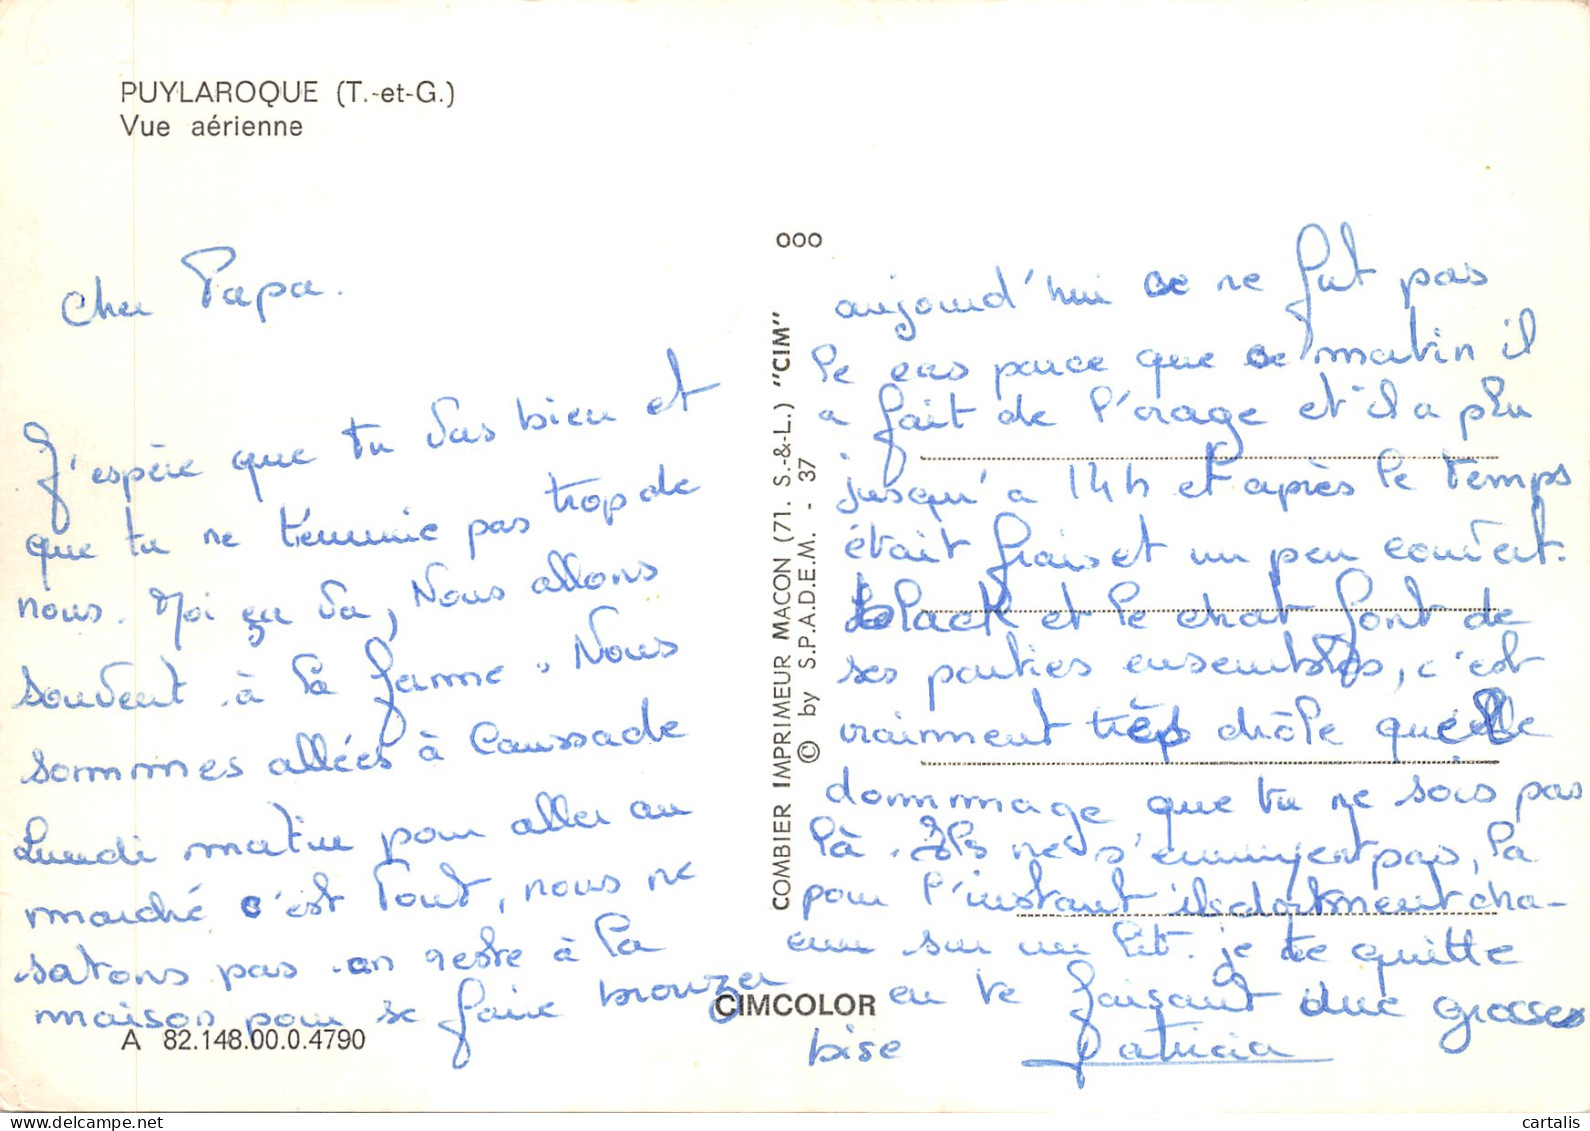 PUYLAROQUE (T.-et-G.)
Vue aérienne
Cher Papa.
J'espère que tu vas bien et
que tu ne t'ennuie pas trop de
nous. Moi ça va, Nous allons
souvent à la ferme. Nous
sommes allées à Caussade
Lundi matin pour aller au
marché c'est tout, nous ne
satons pas on reste à la
maison pour se faire bronzer
A 82.148.00.0.4790
ooo
COMBIER IMPRIMEUR MACON (71. S.-&-L.) "CIM"
© by S.P.A.D.E.M. - 37
CIMCOLOR
aujourd'hui ce ne fut pas
le cas parce que ce matin il
a fait de l'orage et il a plu
jusqu'a 14h et après le temps
était frais et un peu couvert.
Black et le chat font de
ses parties ensembles, c'est
vraiment très drôle quelle
dommage que tu ne sois pas
là. Ils ne s'ennuyent pas, la
pour l'instant ils dorment cha-
cun sur un lit. je te quitte
en te faisant une grosse
bise Patricia
cartalis